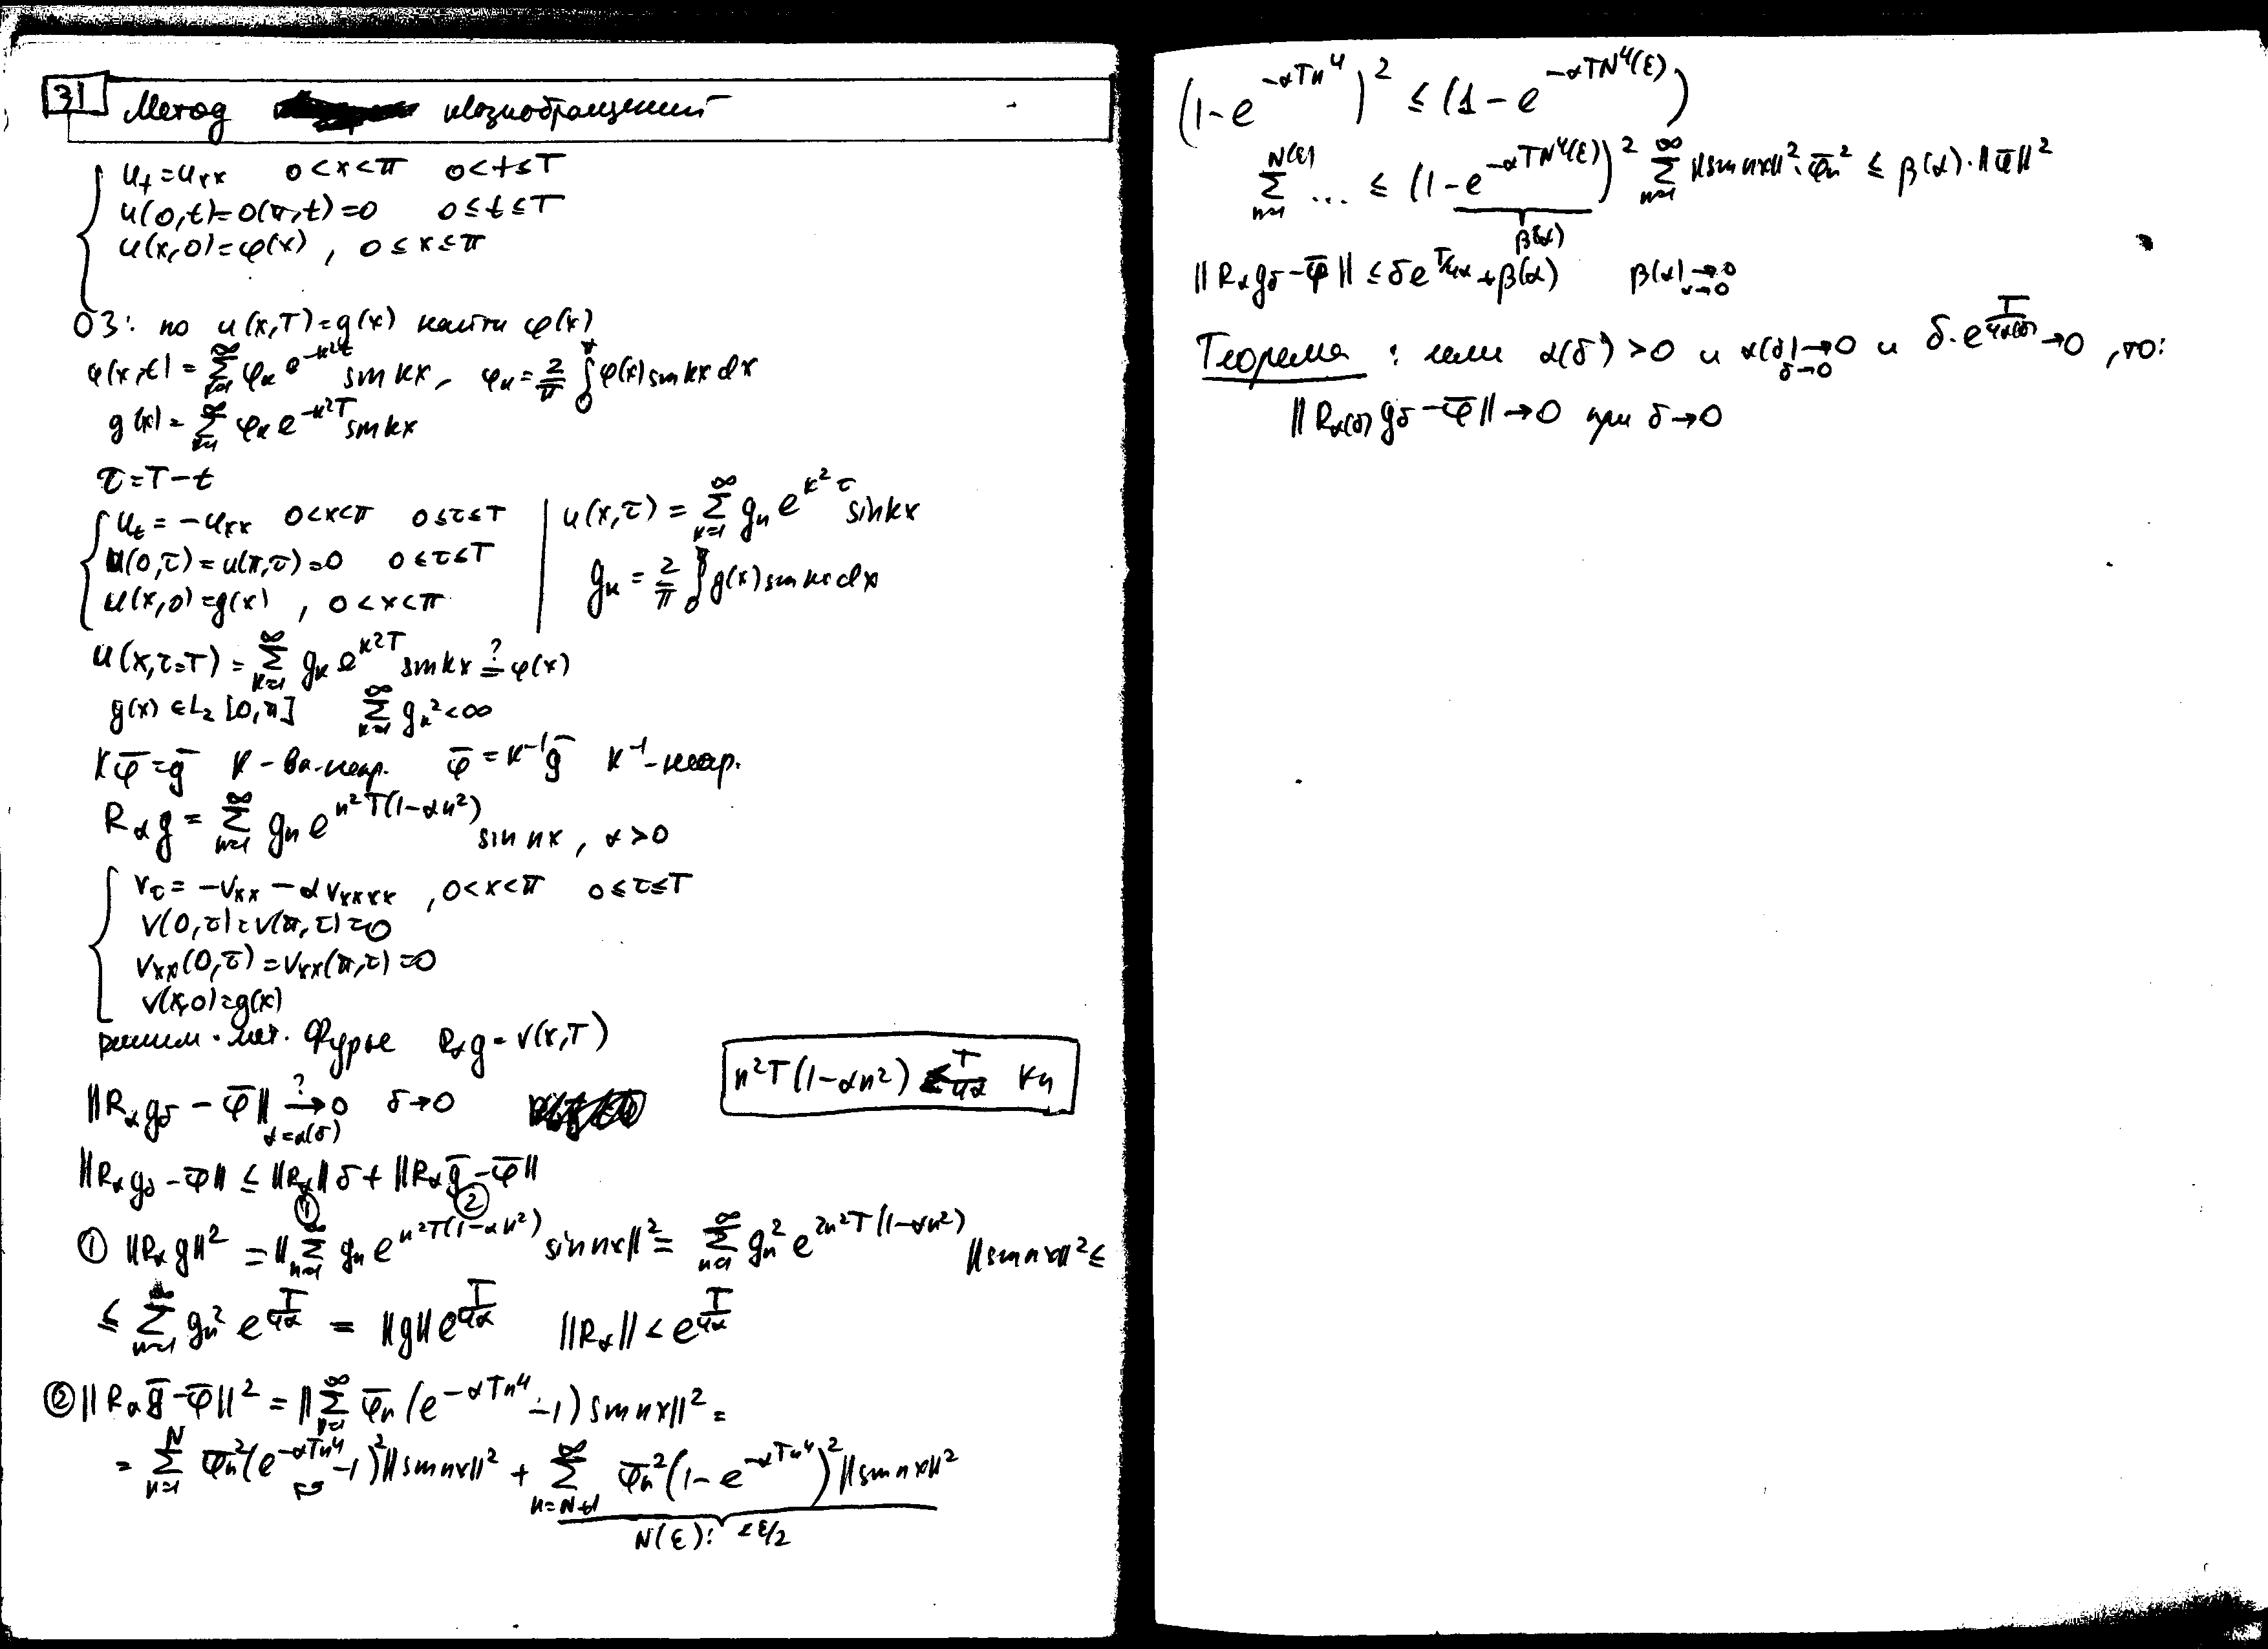 31 Метод квазиобращений
u_t = u_xx 0<x<π 0<t≤T
u(0,t)=0(π,t)=0 0≤t≤T
u(x,0)=φ(x), 0≤x≤π
ОЗ: по u(x,T)=g(x) найти φ(x)
φ(x,t) = Σ_{k=1}^∞ φ_k e^{-k²t} sin kx, φ_k = 2/π ∫_0^π φ(x) sin kx dx
g(x) = Σ_{k=1}^∞ φ_k e^{-k²T} sin kx
τ=T-t
u_t = -u_xx 0<x<π 0≤τ≤T | u(x,τ) = Σ_{k=1}^∞ g_k e^{k²τ} sin kx
u(0,τ)=u(π,τ)=0 0≤τ≤T
u(x,0)=g(x), 0<x<π | g_k = 2/π ∫_0^π g(x) sin kx dx
u(x,τ=T) = Σ_{k=1}^∞ g_k e^{k²T} sin kx =? φ(x)
g(x) ∈ L₂[0,π] Σ_{k=1}^∞ g_k² < ∞
Kφ̄=ḡ K - φ̄ = K⁻¹ḡ K⁻¹
R_α g = Σ_{n=1}^∞ g_n e^{n²T(1-αn²)} sin nx, α>0
v_τ = -v_xx - αv_xxxx, 0<x<π 0≤τ≤T
v(0,τ)=v(π,τ)=0
v_xx(0,τ)=v_xx(π,τ)=0
v(x,0)=g(x)
решим. мет. Фурье R_α g = v(x,T)
n²T(1-αn²) ≤ T/4α ∀n
||R_α g_δ - φ̄|| →? 0 α=α(δ) δ→0
||R_α g_δ - φ̄|| ≤ ||R_α|| δ + ||R_α ḡ - φ̄||
① ②
① ||R_α g||² = ||Σ_{n=1}^∞ g_n e^{n²T(1-αn²)} sin nx||² = Σ_{n=1}^∞ g_n² e^{2n²T(1-αn²)} ||sin nx||² ≤
≤ Σ_{n=1}^∞ g_n² e^{T/4α} = ||g|| e^{T/4α} ||R_α|| ≤ e^{T/4α}
② ||R_α ḡ - φ̄||² = ||Σ_{n=1}^∞ φ̄_n (e^{-αTn⁴} - 1) sin nx||² =
= Σ_{n=1}^N φ̄_n² (e^{-αTn⁴} - 1)² ||sin nx||² + Σ_{n=N+1}^∞ φ̄_n² (1 - e^{-αTn⁴})² ||sin nx||²
N(ε): ≤ε/2
(1 - e^{-αTn⁴})² ≤ (1 - e^{-αTN⁴(ε)})
Σ_{n=1}^{N(ε)} ... ≤ (1 - e^{-αTN⁴(ε)})² Σ_{n=1}^∞ ||sin nx||²·φ̄_n² ≤ β(α)·||φ̄||²
β(α)
||R_α g_δ - φ̄|| ≤ δe^{T/4α} + β(α) β(α) →_{α→0} 0
Теорема: если α(δ)>0 и α(δ) →_{δ→0} 0 и δ·e^{T/4α(δ)} → 0, то:
||R_{α(δ)} g_δ - φ̄|| → 0 при δ→0